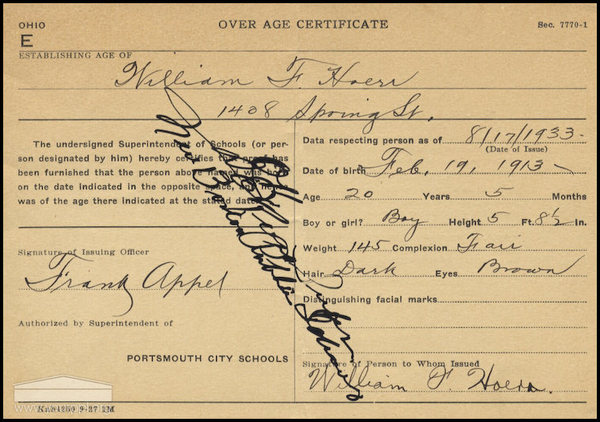 OHIO
OVER AGE CERTIFICATE
Sec. 7770-1
E
ESTABLISHING AGE OF
William F. Hoerr
1408 Spring St.
The undersigned Superintendent of Schools (or per-
son designated by him) hereby certifies that proof has
been furnished that the person above named was born
on the date indicated in the opposite space, and hence
was of the age there indicated at the stated date.
Signature of Issuing Officer
Frank Appel
Authorized by Superintendent of
PORTSMOUTH CITY SCHOOLS
Data respecting person as of 8/17/1933-
(Date of Issue)
Date of birth Feb. 19, 1913-
Age 20 Years 5 Months
Boy or girl? Boy Height 5 Ft. 8½ In.
Weight 145 Complexion Fair
Hair Dark Eyes Brown
Distinguishing facial marks
Signature of Person to Whom Issued
William F. Hoerr.
Public Schools